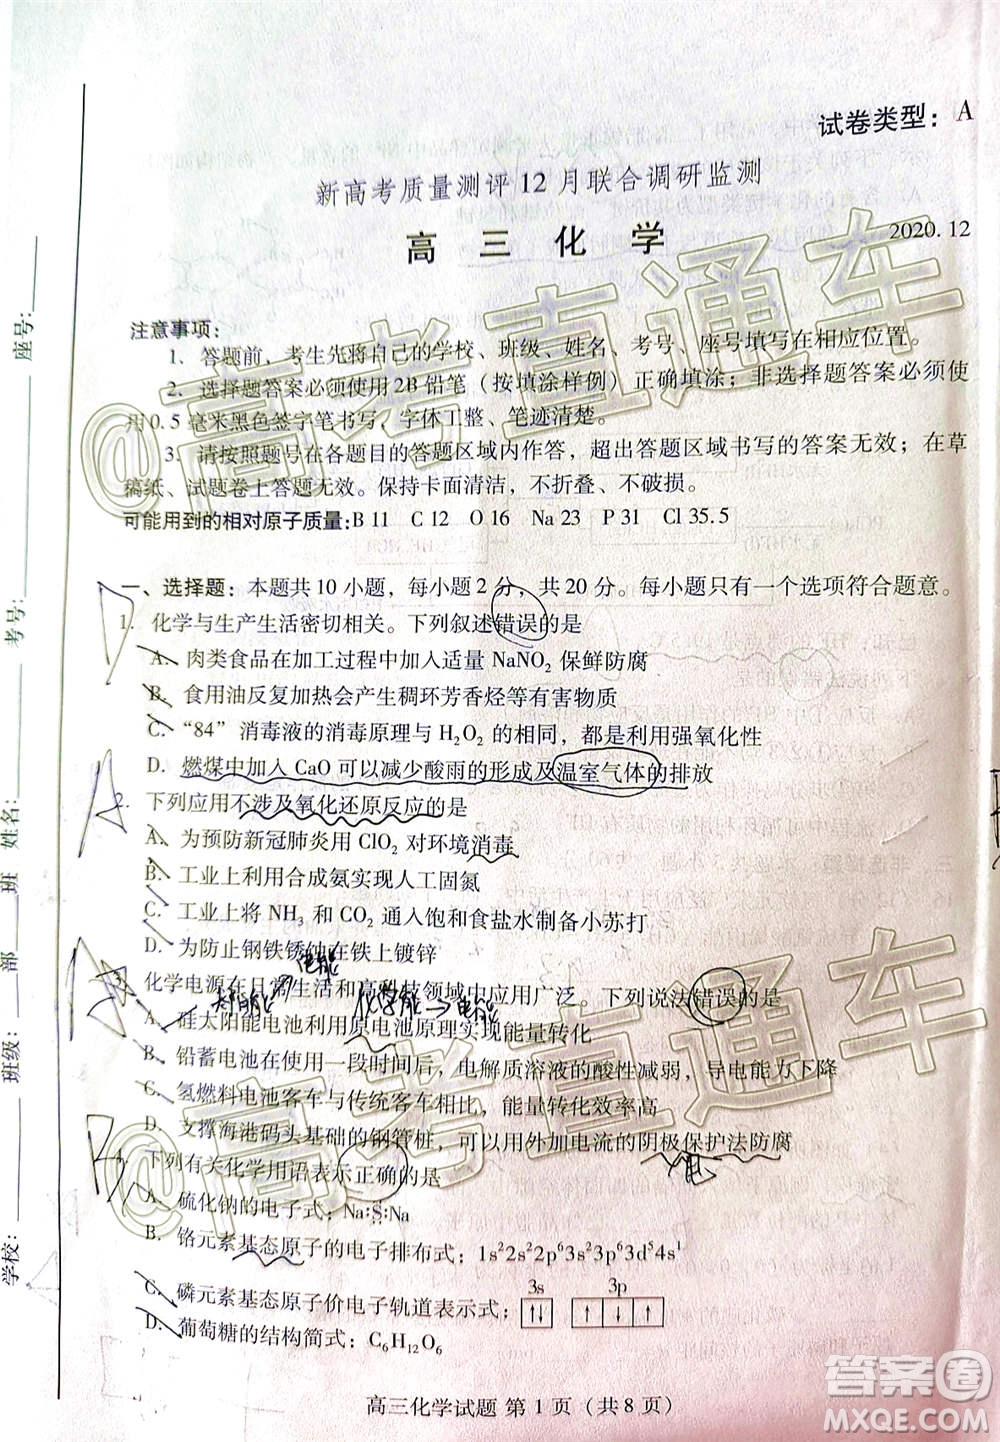 试卷类型：A
新高考质量测评12月联合调研监测
高三化学
2020.12
注意事项：
1. 答题前，考生先将自己的学校、班级、姓名、考号、座号填写在相应位置。
2. 选择题答案必须使用2B铅笔（按填涂样例）正确填涂；非选择题答案必须使
用0.5毫米黑色签字笔书写，字体工整、笔迹清楚。
3. 请按照题号在各题目的答题区域内作答，超出答题区域书写的答案无效；在草
稿纸、试题卷上答题无效。保持卡面清洁，不折叠、不破损。
可能用到的相对原子质量：B 11 C 12 O 16 Na 23 P 31 Cl 35.5
一、选择题：本题共10小题，每小题2分，共20分。每小题只有一个选项符合题意。
1. 化学与生产生活密切相关。下列叙述错误的是
A. 肉类食品在加工过程中加入适量NaNO₂保鲜防腐
B. 食用油反复加热会产生稠环芳香烃等有害物质
C. “84”消毒液的消毒原理与H₂O₂的相同，都是利用强氧化性
D. 燃煤中加入CaO可以减少酸雨的形成及温室气体的排放
2. 下列应用不涉及氧化还原反应的是
A. 为预防新冠肺炎用ClO₂对环境消毒
B. 工业上利用合成氨实现人工固氮
C. 工业上将NH₃和CO₂通入饱和食盐水制备小苏打
D. 为防止钢铁锈蚀在铁上镀锌
3. 化学电源在日常生活和高科技领域中应用广泛。下列说法错误的是
太阳能 电能 化学能→电能
A. 硅太阳能电池利用原电池原理实现能量转化
B. 铅蓄电池在使用一段时间后，电解质溶液的酸性减弱，导电能力下降
C. 氢燃料电池客车与传统客车相比，能量转化效率高
D. 支撑海港码头基础的钢管桩，可以用外加电流的阴极保护法防腐
下列有关化学用语表示正确的是
A. 硫化钠的电子式：Na:S:Na
B. 铬元素基态原子的电子排布式：1s²2s²2p⁶3s²3p⁶3d⁵4s¹
3s 3p
C. 磷元素基态原子价电子轨道表示式：↑↓ ↑ ↑ ↑
D. 葡萄糖的结构简式：C₆H₁₂O₆
高三化学试题 第1页（共8页）
学校： 班级： 部 班 姓名： 考号： 座号：
@高考直通车
@高考直通车
答案圈
MXQE.COM